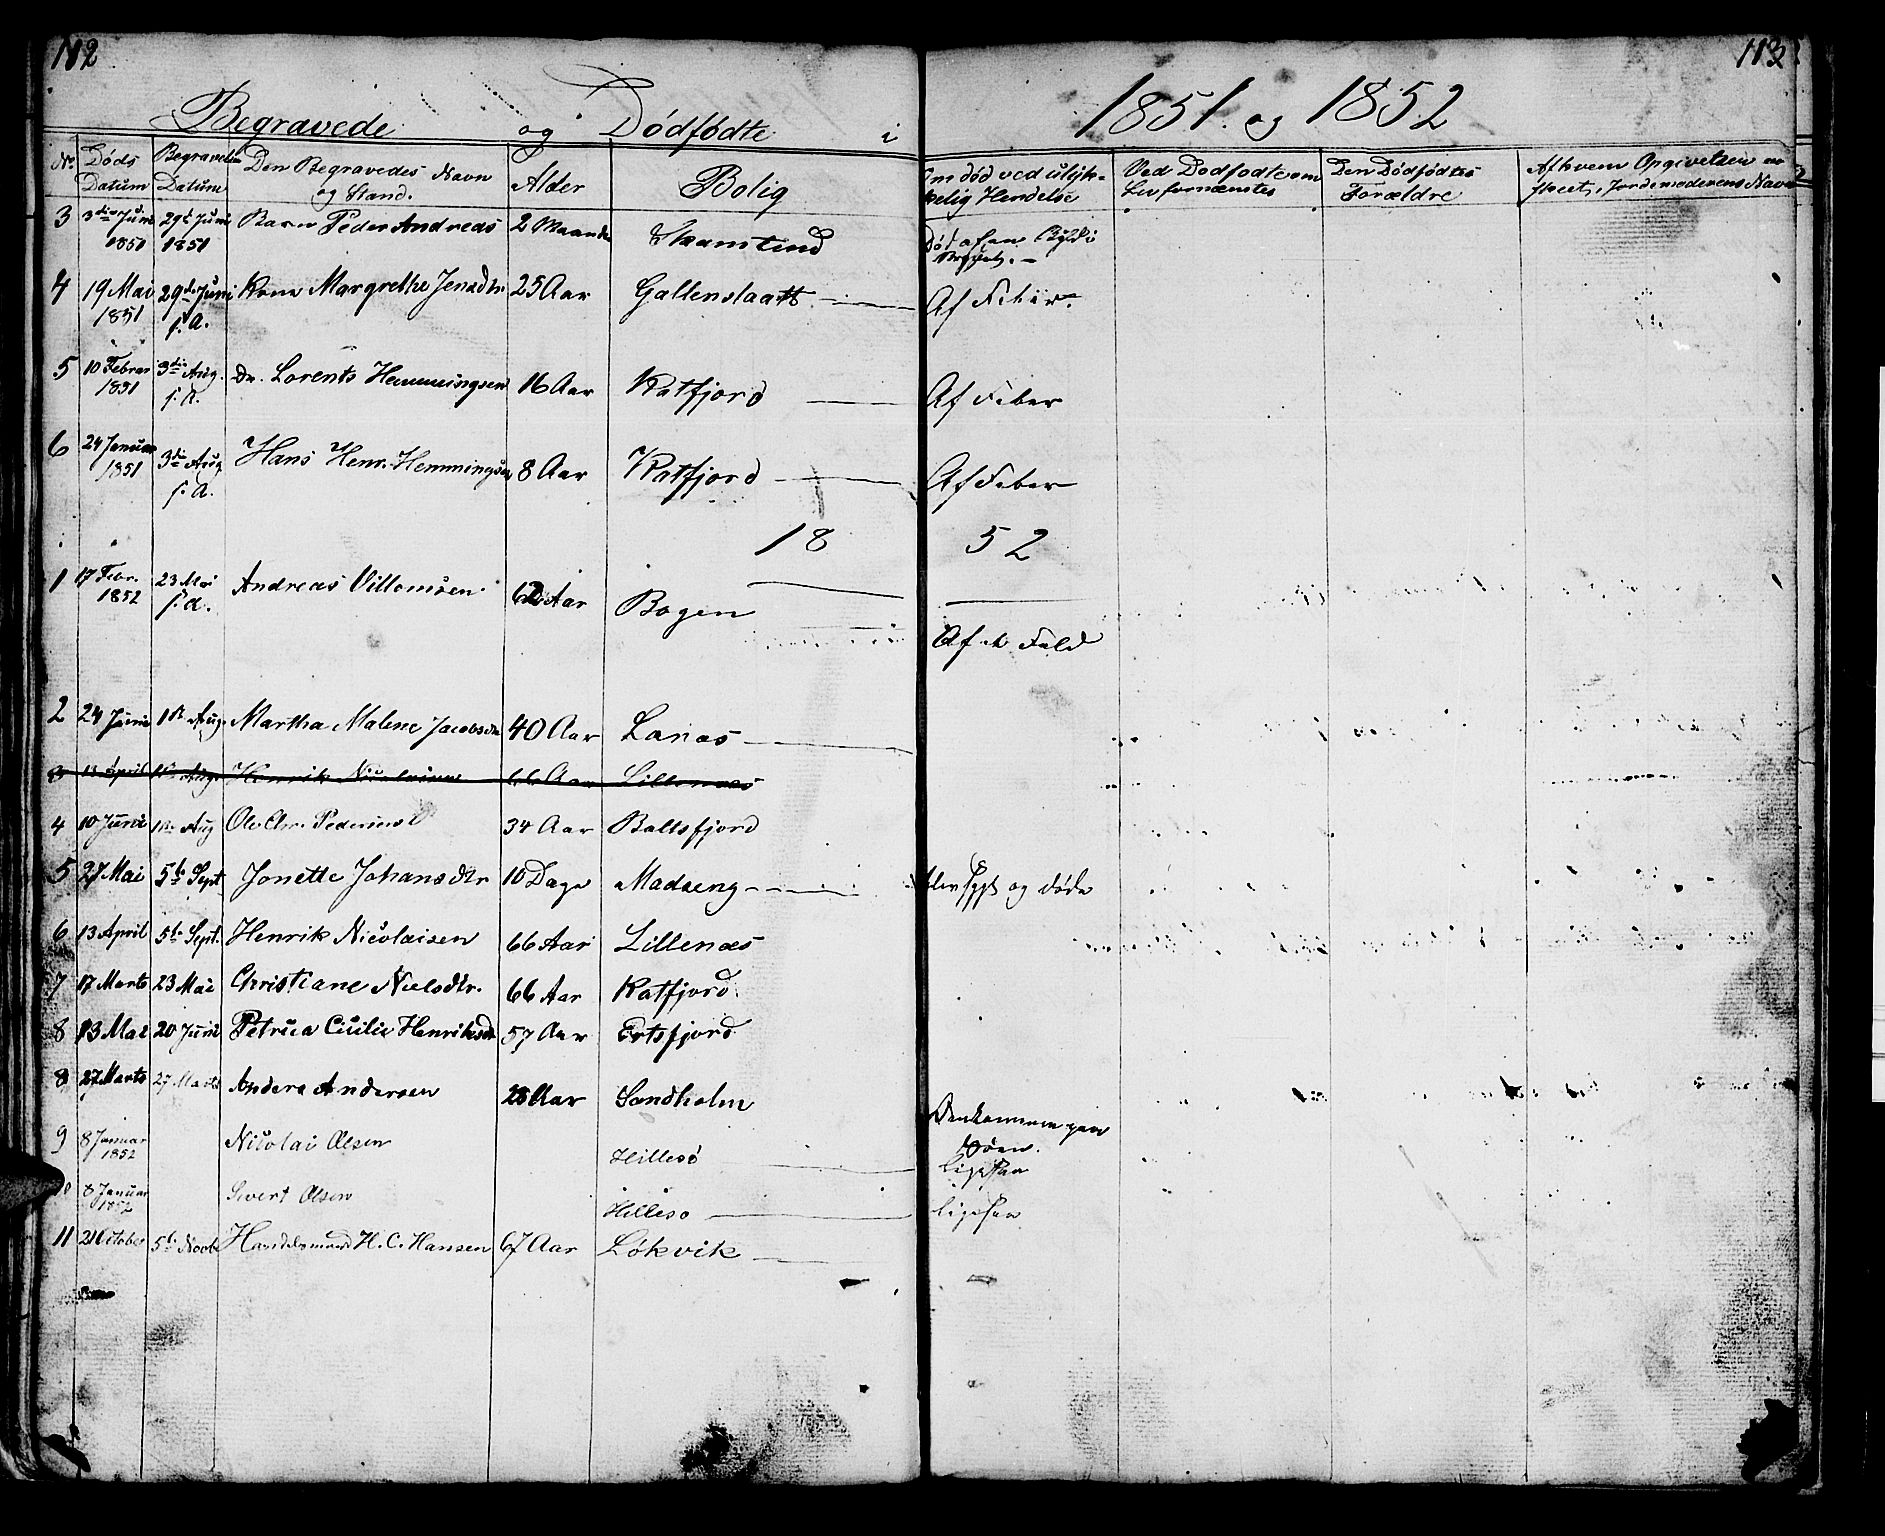 112
113
Begravede og Dødfødte i 1851. og 1852
No Døds Datum Begravelse Datum Den Begravedes Navn og Stand. Alder Bolig Om død ved ulykkelig Hendelse Ved Dodfodte om Liv fornæmtes Den Dødfødtes Forældre Af hvem Opgivelsen er skeet, Jordemoderens Navn
3 3die Juni 1851 29de Juni 1851 Barn Peder Andreas 2 Maaneder Død af en
4 19 Mai 1851 29de Juni s. A. Kone Margrethe Jensdtr 25 Aar Af Feber
5 10 Februar 1851 3die Aug. s. A. Dr. Lorents Hemmingsen 16 Aar Katfjord Af Feber
6 24 Januar 1851 3die Aug s. A. Hans Henr. Hemmingsen 8 Aar Katfjord Af Feber
18 52
1 17 Febr. 1852 23 Mai s. A. Andreas Villomsen 62 Aar Bogen Af et Fald
2 24 Juni 1ste Aug. Martha Malene Jacobsdtr 40 Aar Lanas
3 13 April 1ste Aug. Henrik Nicolaisen 66 Aar Lillenæs
4 10 Juni 1ste Aug Ole Chr. 34 Aar Baltsfjord
5 27 Mai 5te Sept Jonette Johansdtr 10 Dage Madseng blev sygt og døde
6 13 April 5te Sept. Henrik Nicolaisen 66 Aar Lillenæs
7 17 Marts 23 Mai Christiane Nielsdtr. 66 Aar Katfjord.
8 13 Mai 20 Juni Petrica Cicilie Henriksdtr 57 Aar Ertsfjord
8 27 Marts 27 Marts Anders Andersen 28 Aar Sandholm
9 8 Januar 1852 Nicolai Olsen Hillesø Omkommen paa Søen. ligesaa
10 8 Januar 1852 Sivert Olsen Hilleso ligesaa
11 21 October 5te Novbr Handelsmand H. C. Hansen 67 Aar Løkvik